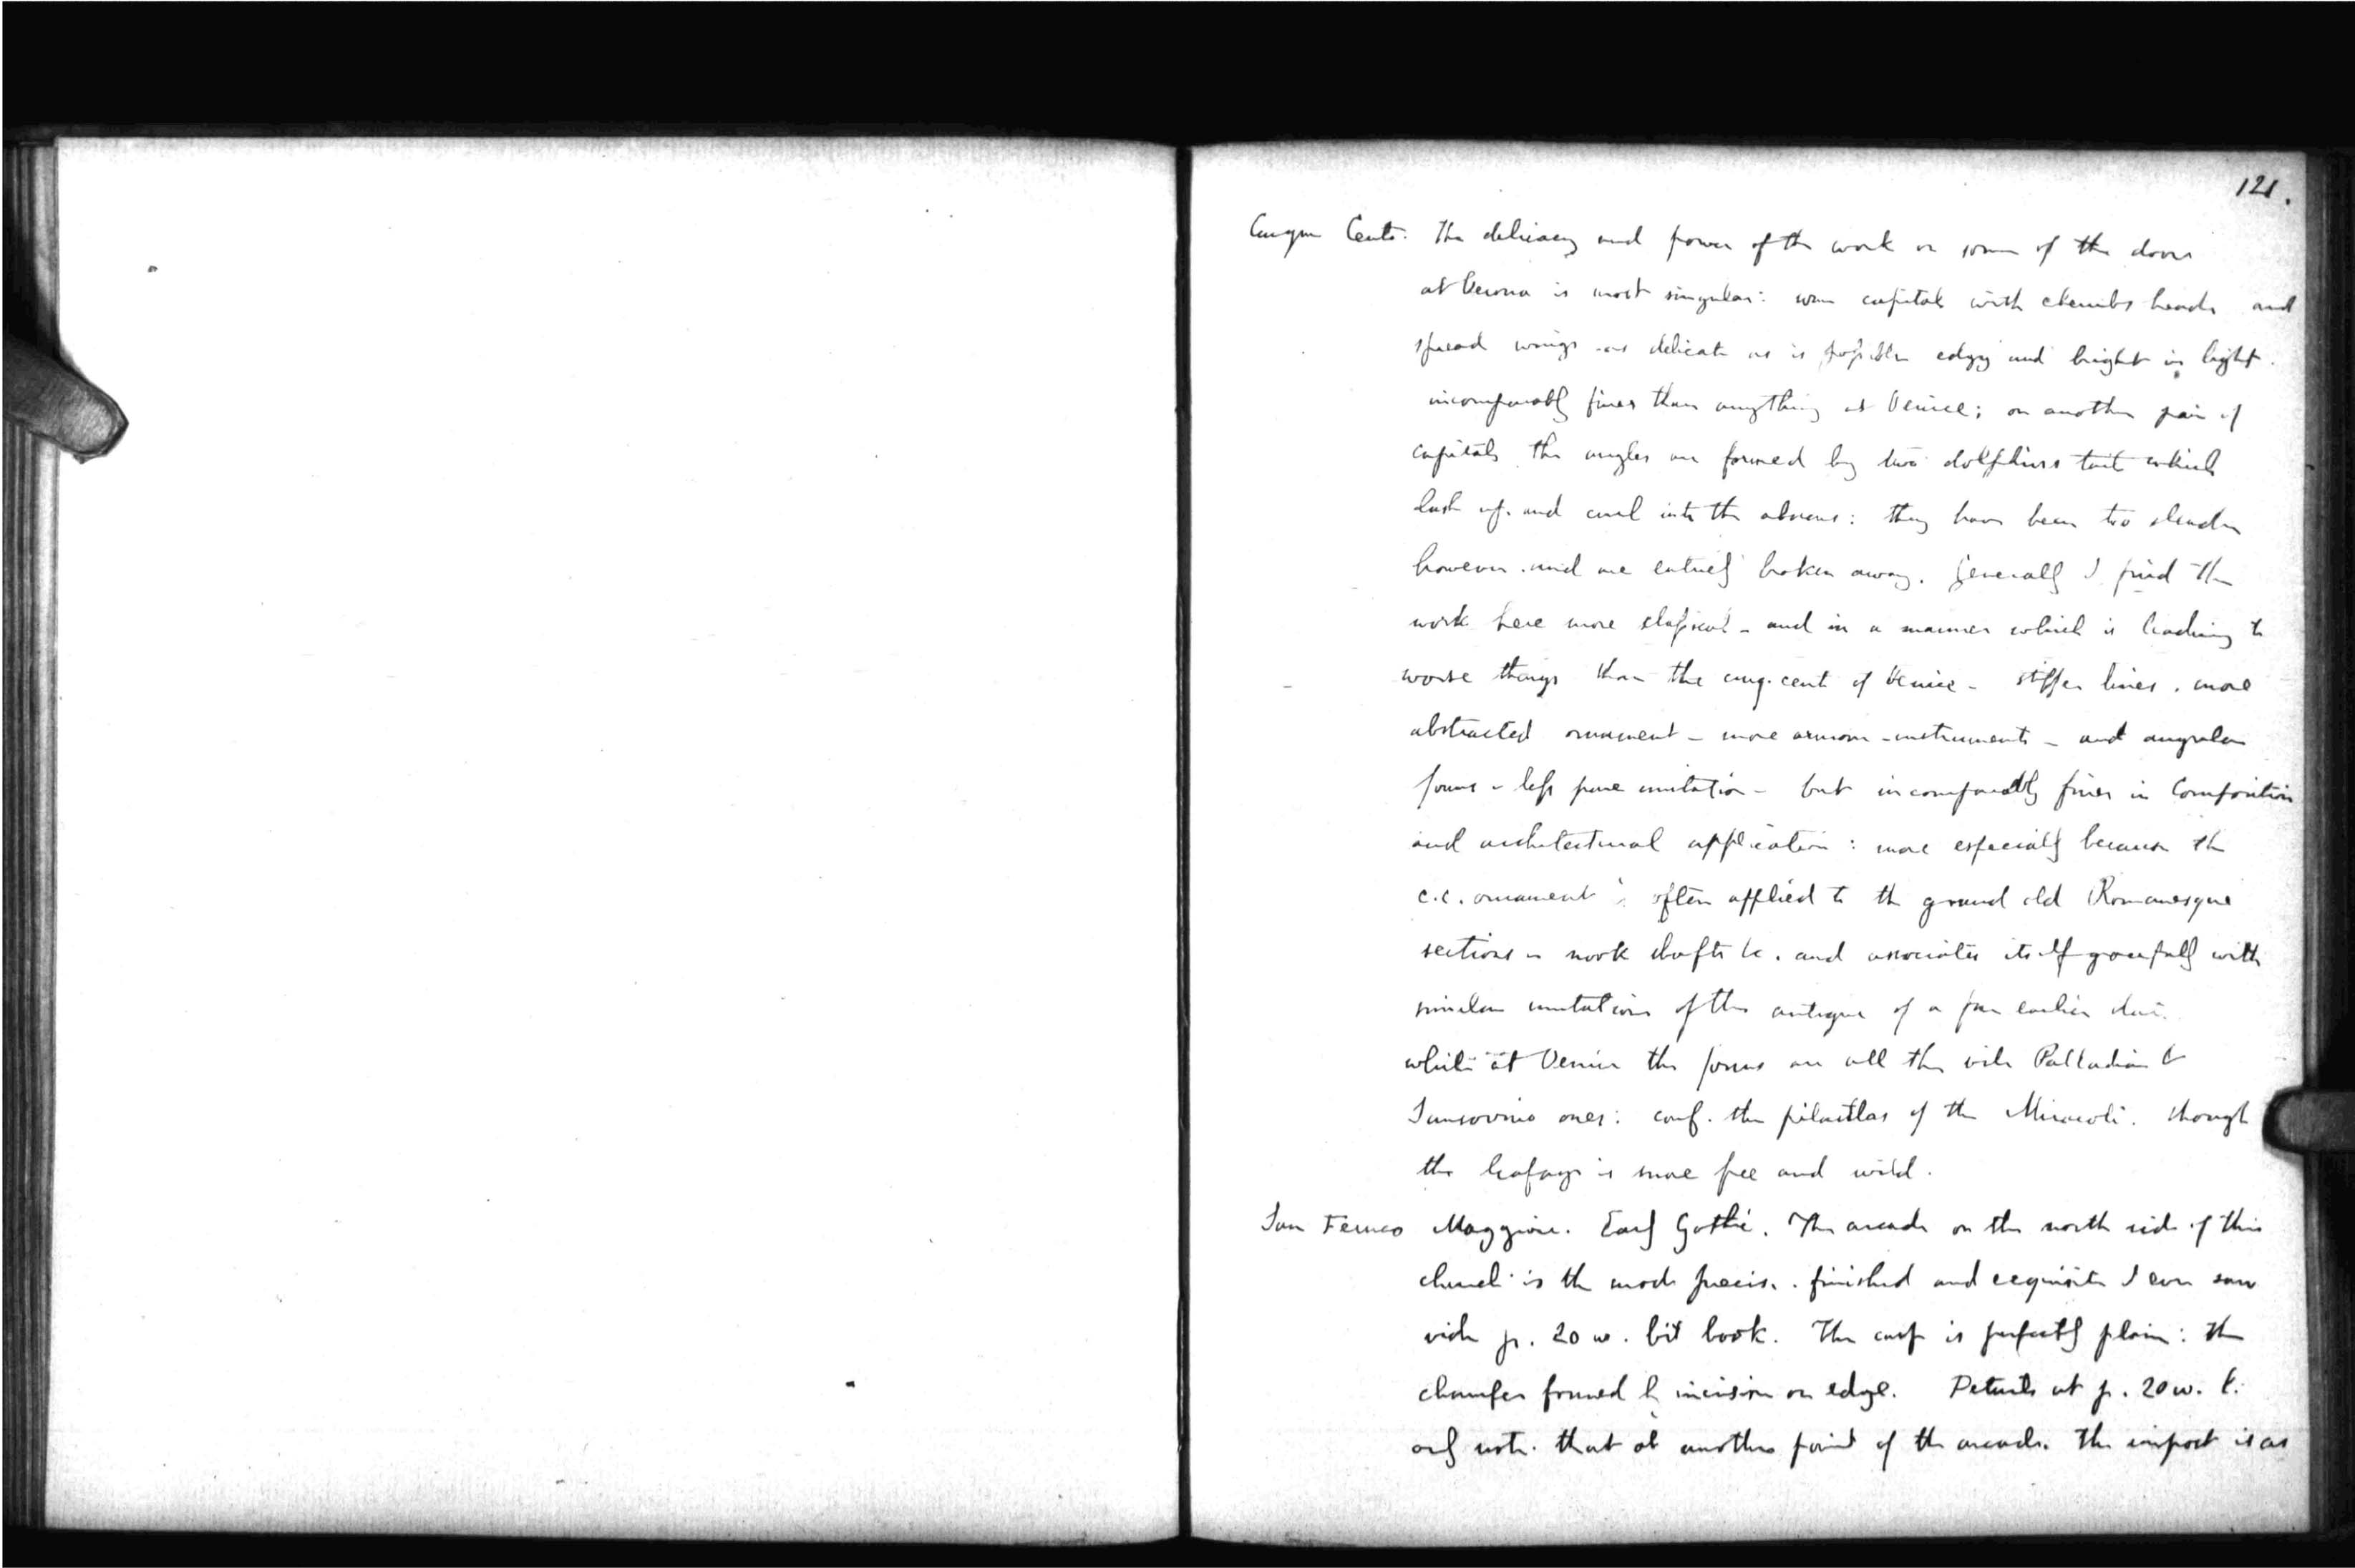 121.
Cinque Cento. The delicacy and power of the work on some of the doors
at Verona is most singular: some capitals with cherubs heads and
spread wings as delicate as is possible edgy and bright in light.
incomparably finer than anything at Venice; on another pair of
capitals the angles are formed by two dolphins tails which
lash up. and curl into the abacus: they have been too slender
however. and are entirely broken away. Generally I find the
work here more classical - and in a manner which is leading to
worse things than the cinq. cent of Venice - stiffer lines, more
abstracted ornament - more armour - instruments - and angular
forms - less pure imitation - but incomparably finer in Composition
and architectural application: more especially because the
c.c. ornament is often applied to the grand old Romanesque
sections - nook shafts &c. and associates itself gracefully with
similar imitations of the antique of a far earlier date.
while at Venice the forms are all the vile Palladian &
Sansovino ones: conf. the pilasters of the Miracoli. though
the leafage is more free and wild.
San Fermo Maggiore. Early Gothic. The arcade on the north side of this
church is the most precise. finished and exquisite I ever saw
vide p. 20 w. bit book. The cusp is perfectly plain: the
chamfer formed by incision on edge. Details at p. 20 w. b.
only note. that at another point of the arcade. The impost is as